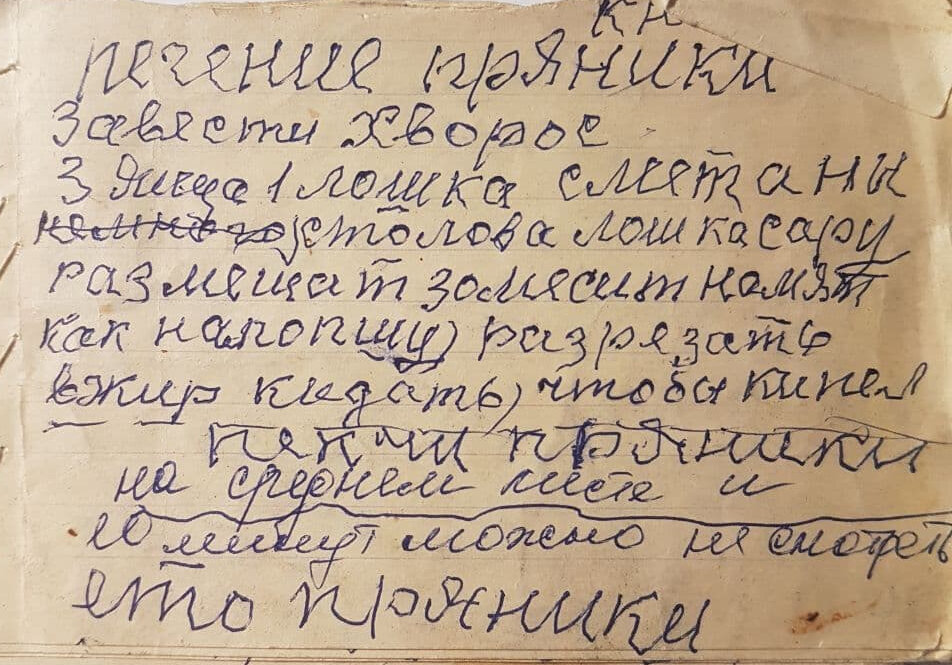 кн
печение пряники
Завести Хворос
3 яица 1 лошка сметаны
немного столова лошка сару
размешат зомесит
как налопшу) разрезать
вжир кидать, чтобы кипел
пекчи пряники
на среднем листе и
10 минут можно не смотреть
ето пряники